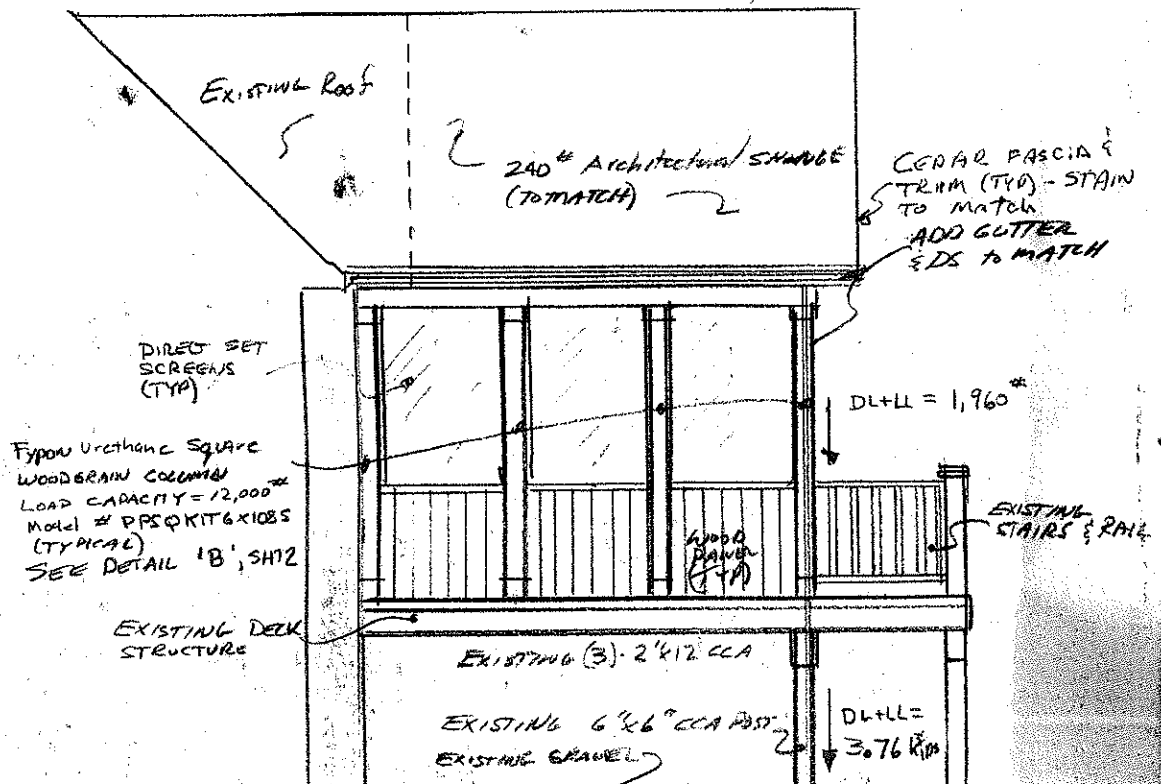 EXISTING Roof
240# Architectural SHINGLE
(TO MATCH)
CEDAR FASCIA &
TRIM (TYP) - STAIN
TO MATCH
ADD GUTTER
& DS to MATCH
DIRECT SET
SCREENS
(TYP)
DL+LL = 1,960#
Fypon Urethane Square
WOODGRAIN COLUMN
LOAD CAPACITY = 12,000#
Model # PPSQKIT6X108S
(TYPICAL)
SEE DETAIL 'B', SHT2
WOOD
PANEL
(TYP)
EXISTING
STAIRS & RAIL
EXISTING DECK
STRUCTURE
EXISTING (3)-2"x12 CCA
EXISTING 6"x6" CCA POST
EXISTING GRAVEL
DL+LL=
3.76 Kips